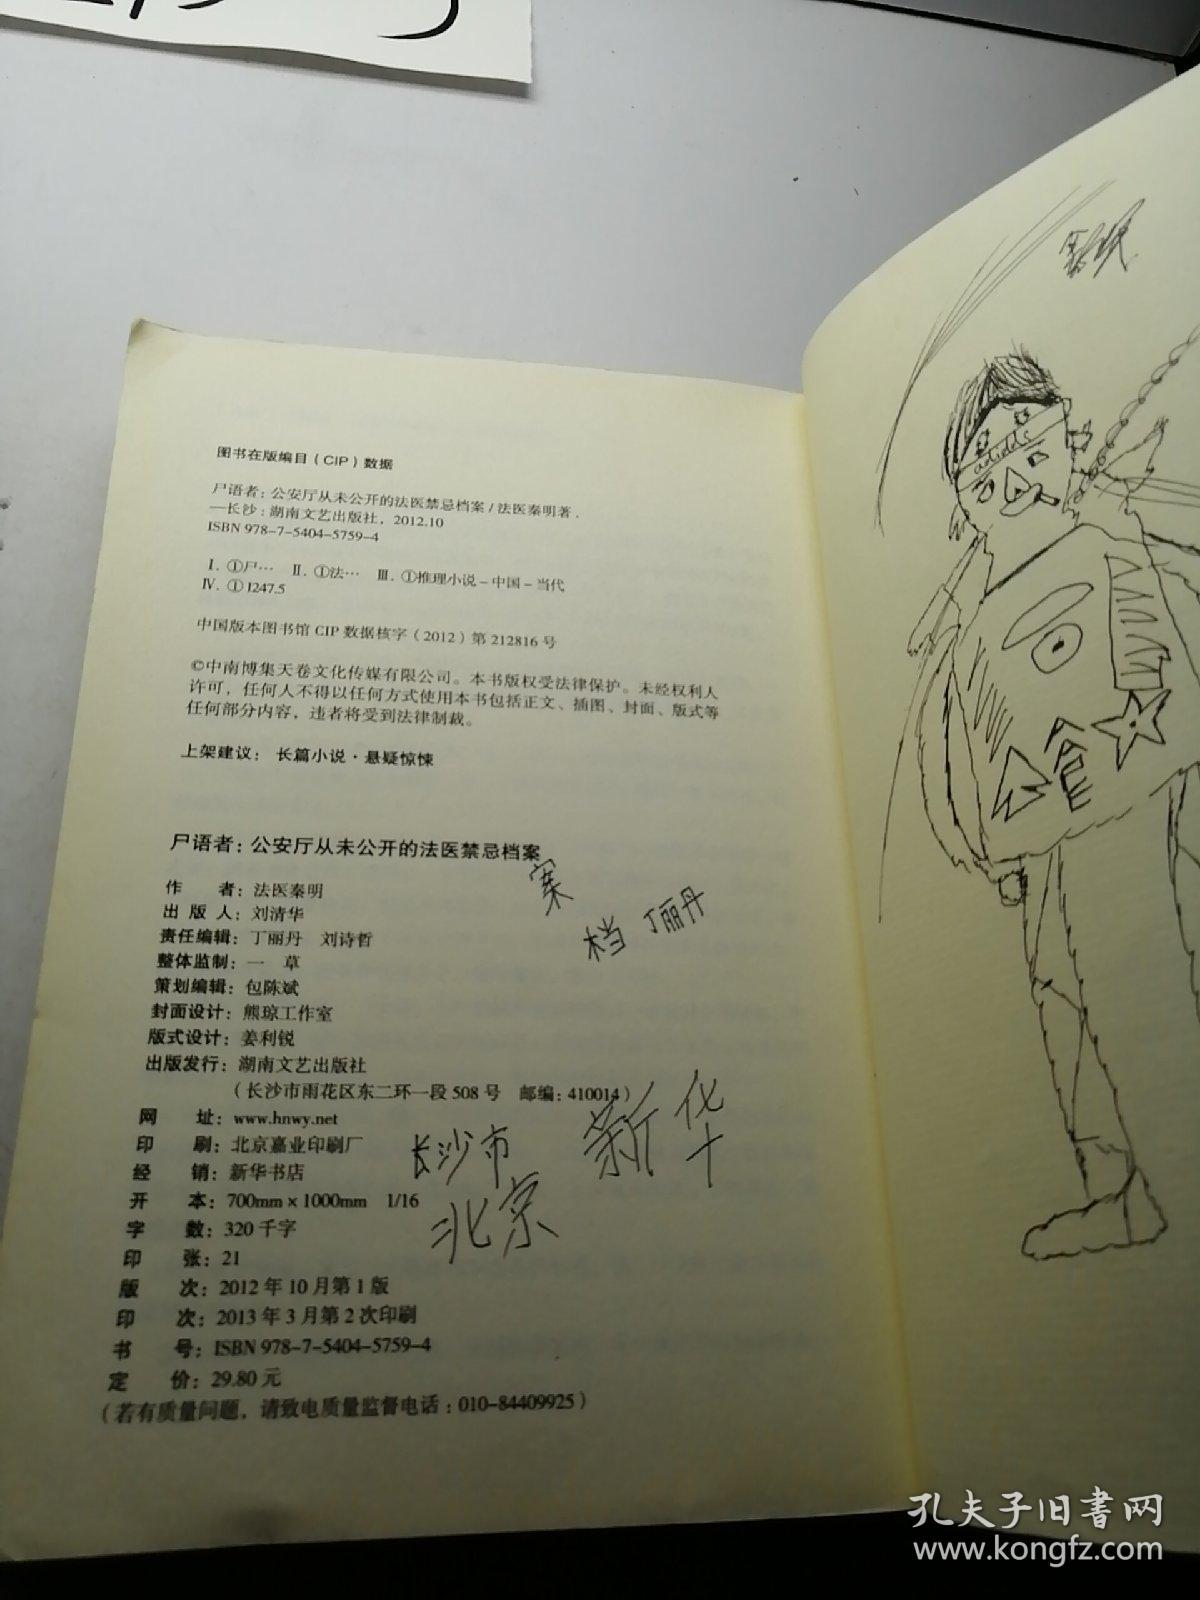 图书在版编目（CIP）数据
尸语者：公安厅从未公开的法医禁忌档案/法医秦明著．
—长沙：湖南文艺出版社，2012.10
ISBN 978-7-5404-5759-4
Ⅰ．①尸… Ⅱ．①法… Ⅲ．①推理小说－中国－当代
Ⅳ．① I247.5
中国版本图书馆 CIP 数据核字（2012）第 212816 号
©中南博集天卷文化传媒有限公司。本书版权受法律保护。未经权利人
许可，任何人不得以任何方式使用本书包括正文、插图、封面、版式等
任何部分内容，违者将受到法律制裁。
上架建议：长篇小说·悬疑惊悚
尸语者：公安厅从未公开的法医禁忌档案
案
作 者：法医秦明
出 版 人：刘清华
档 丁丽丹
责任编辑：丁丽丹 刘诗哲
整体监制：一 草
策划编辑：包陈斌
封面设计：熊琼工作室
版式设计：姜利锐
出版发行：湖南文艺出版社
（长沙市雨花区东二环一段 508 号 邮编：410014）
网 址：www.hnwy.net
印 刷：北京嘉业印刷厂
长沙市 新华
经 销：新华书店
北京
开 本：700mm × 1000mm 1/16
字 数：320 千字
印 张：21
版 次：2012 年 10 月第 1 版
印 次：2013 年 3 月第 2 次印刷
书 号：ISBN 978-7-5404-5759-4
定 价：29.80 元
（若有质量问题，请致电质量监督电话：010-84409925）
孔夫子旧书网
www.kongfz.com